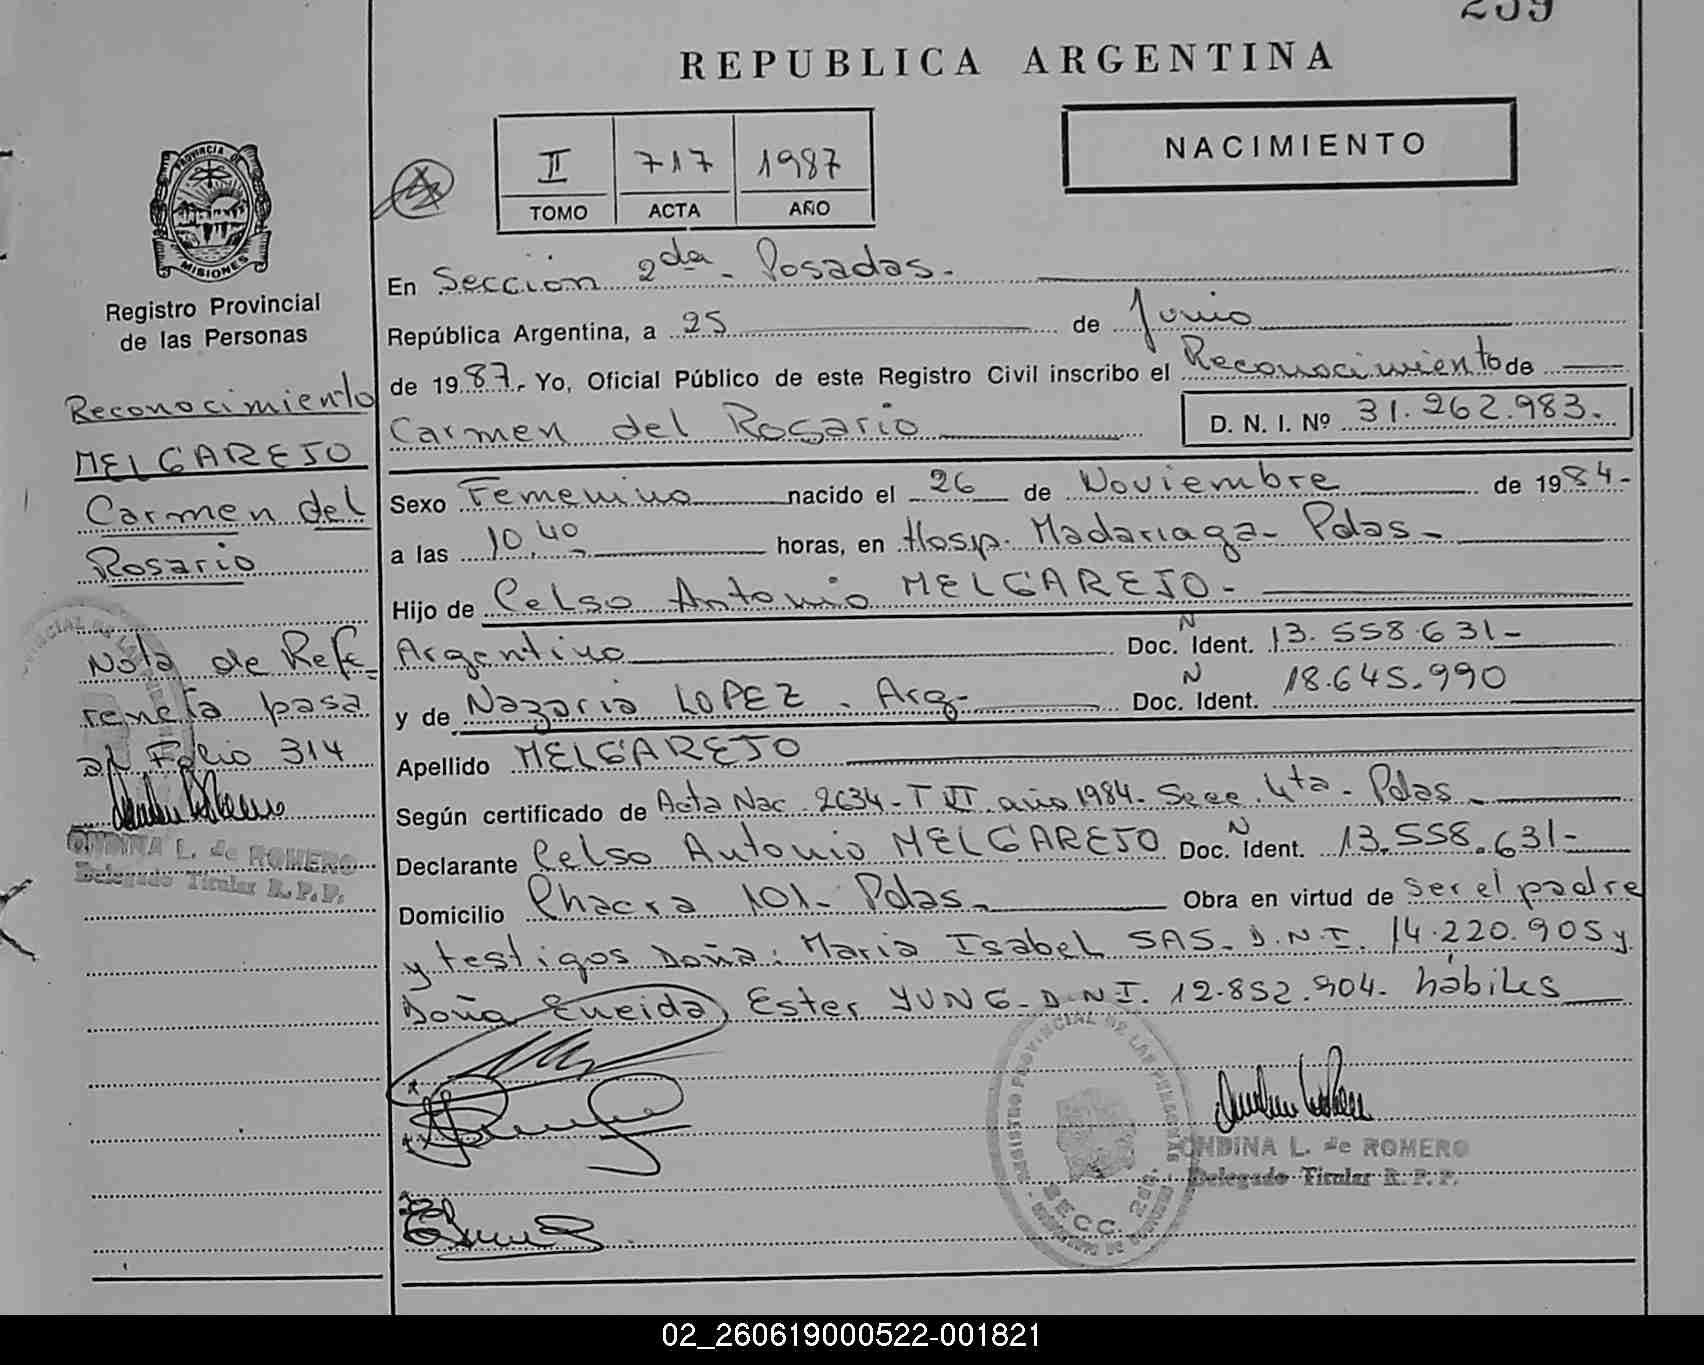 259
REPUBLICA ARGENTINA
NACIMIENTO
II 717 1987
TOMO ACTA AÑO
PROVINCIA DE
MISIONES
Registro Provincial
de las Personas
Reconocimiento
MELGAREJO
Carmen del
Rosario
Nota de Refe
rencia pasa
al Folio 314
ONDINA L. de ROMERO
Delegado Titular R. P. P.
En Sección 2da - Posadas.
República Argentina, a 25 de Junio
de 1987. Yo, Oficial Público de este Registro Civil inscribo el Reconocimiento de
Carmen del Rosario D. N. I. Nº 31.262.983.
Sexo Femenino nacido el 26 de Noviembre de 1984-
a las 10,40 horas, en Hosp. Madariaga - Pdas -
Hijo de Celso Antonio MELGAREJO -
Argentino Doc. N Ident. 13.558.631-
y de Nazaria LOPEZ . Arg- Doc. N Ident. 18.645.990
Apellido MELGAREJO
Según certificado de Acta Nac. 2634 - T VI año 1984. Secc. 4ta - Pdas -
Declarante Celso Antonio MELGAREJO Doc. N Ident. 13.558.631-
Domicilio Chacra 101 - Pdas - Obra en virtud de ser el padre
y testigos Doña: Maria Isabel SAS - D.N.I. 14.220.905 y
Doña Eneida Ester YUNG - D.N.I. 12.852.904 - hábiles
REGISTRO PROVINCIAL DE LAS PERSONAS
SECC. 2da.
ONDINA L. de ROMERO
Delegado Titular R. P. P.
02_260619000522-001821